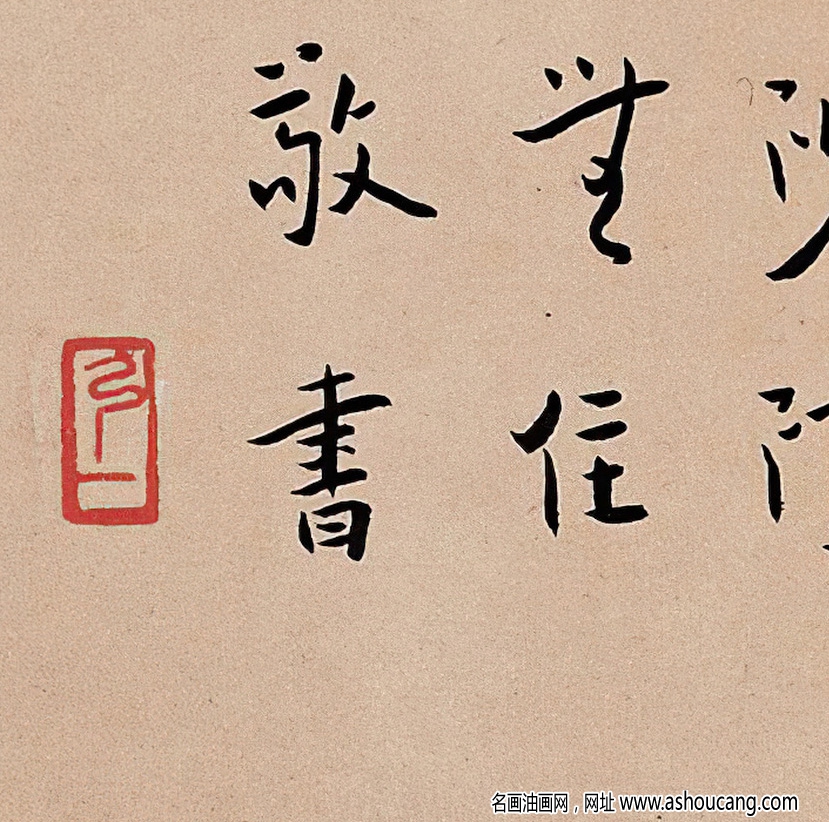 無住
敬書
弘一
名画油画网，网址 www.ashoucang.com